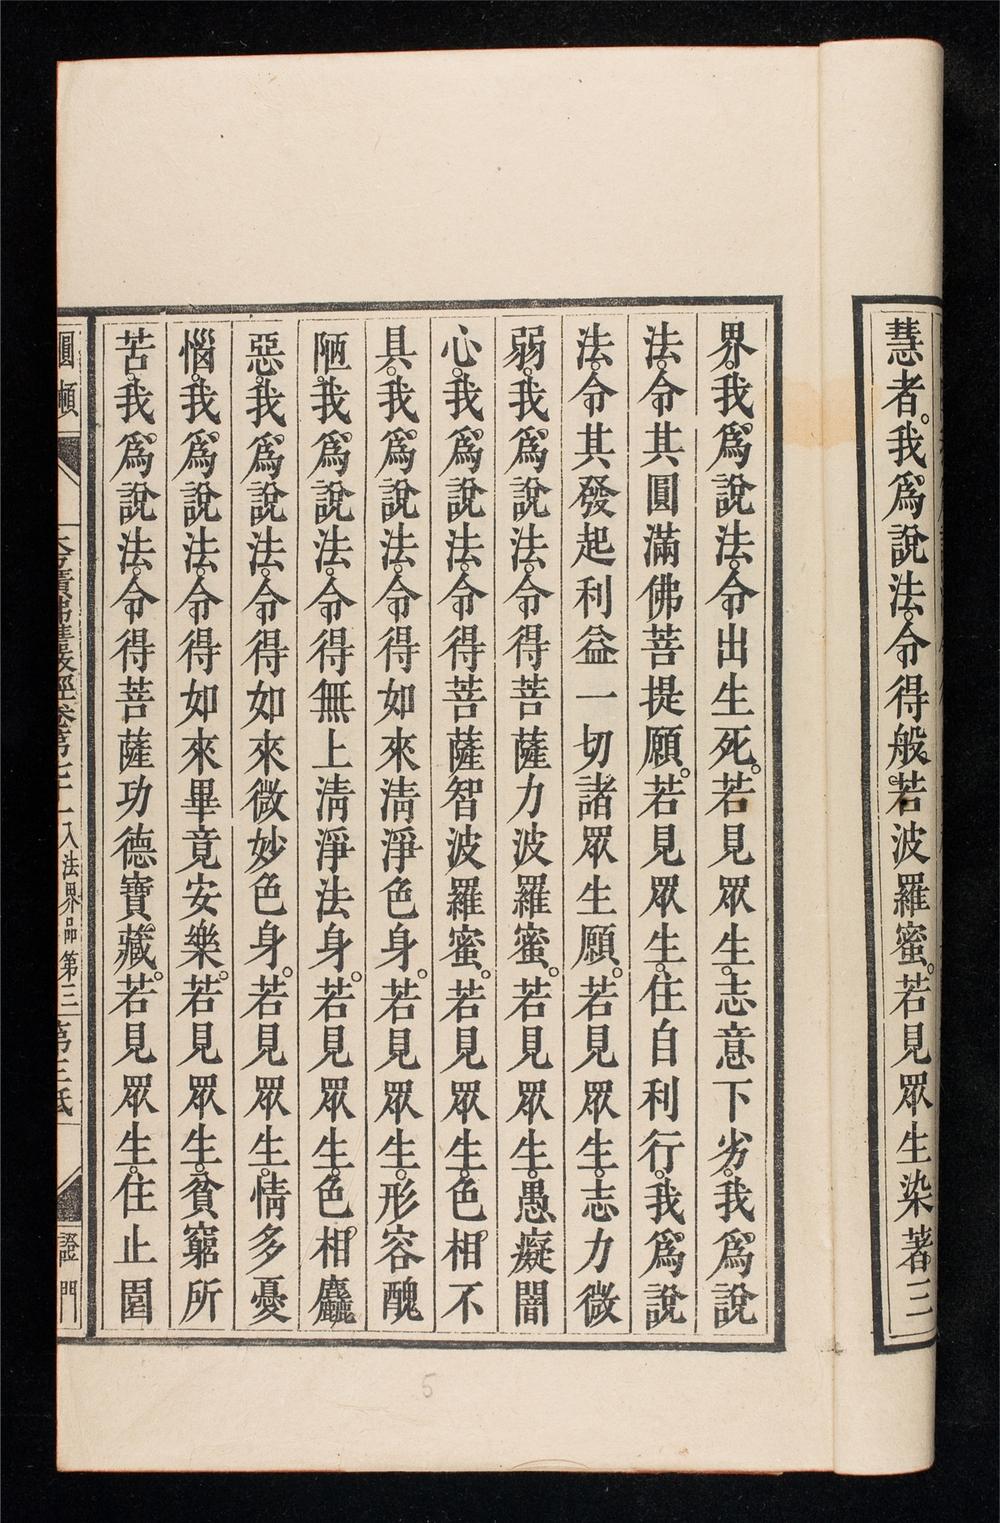 慧者。我爲說法。令得般若波羅蜜。若見眾生染著三
界。我爲說法。令出生死。若見眾生。志意下劣。我爲說
法。令其圓滿佛菩提願。若見眾生。住自利行。我爲說
法。令其發起利益一切諸眾生願。若見眾生。志力微
弱。我爲說法。令得菩薩力波羅蜜。若見眾生。愚癡闇
心。我爲說法。令得菩薩智波羅蜜。若見眾生。色相不
具。我爲說法。令得如來清淨色身。若見眾生。形容醜
陋。我爲說法。令得無上清淨法身。若見眾生。色相麤
惡。我爲說法。令得如來微妙色身。若見眾生。情多憂
惱。我爲說法。令得如來畢竟安樂。若見眾生。貧窮所
苦。我爲說法。令得菩薩功德寶藏。若見眾生。住止園
入法界品第三 證門
5